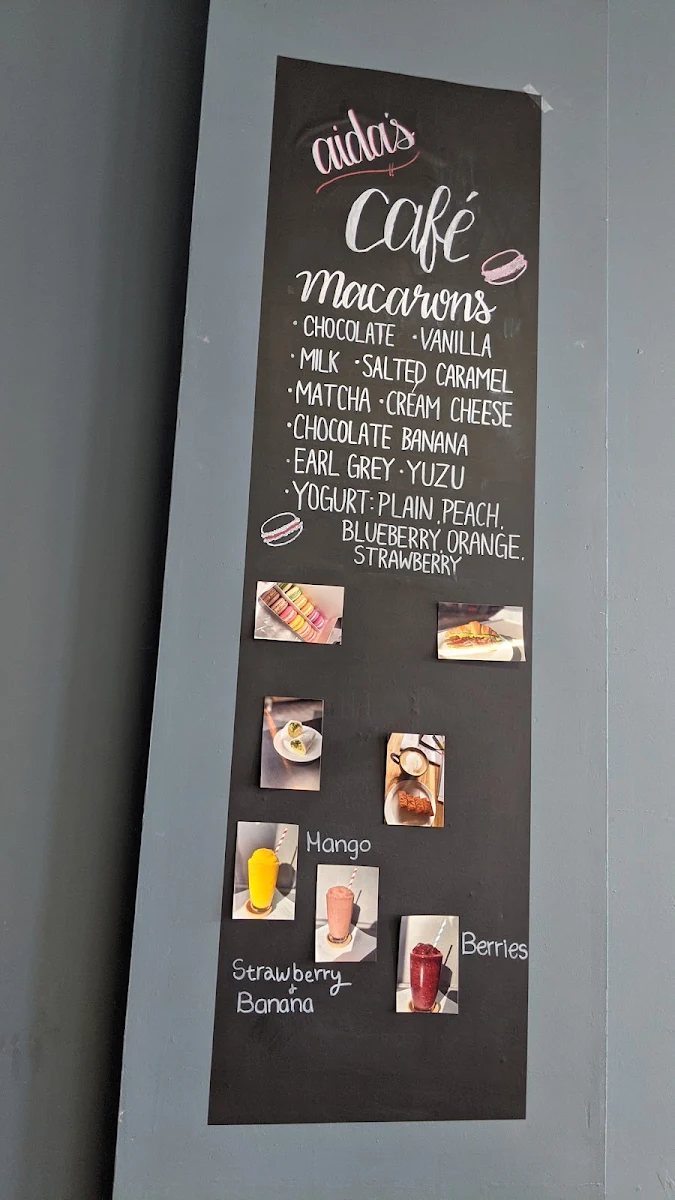 aida's
Café
macarons
· CHOCOLATE · VANILLA
· MILK · SALTED CARAMEL
· MATCHA · CREAM CHEESE
· CHOCOLATE BANANA
· EARL GREY · YUZU
· YOGURT: PLAIN, PEACH,
BLUEBERRY, ORANGE,
STRAWBERRY
Mango
Berries
Strawberry
&
Banana